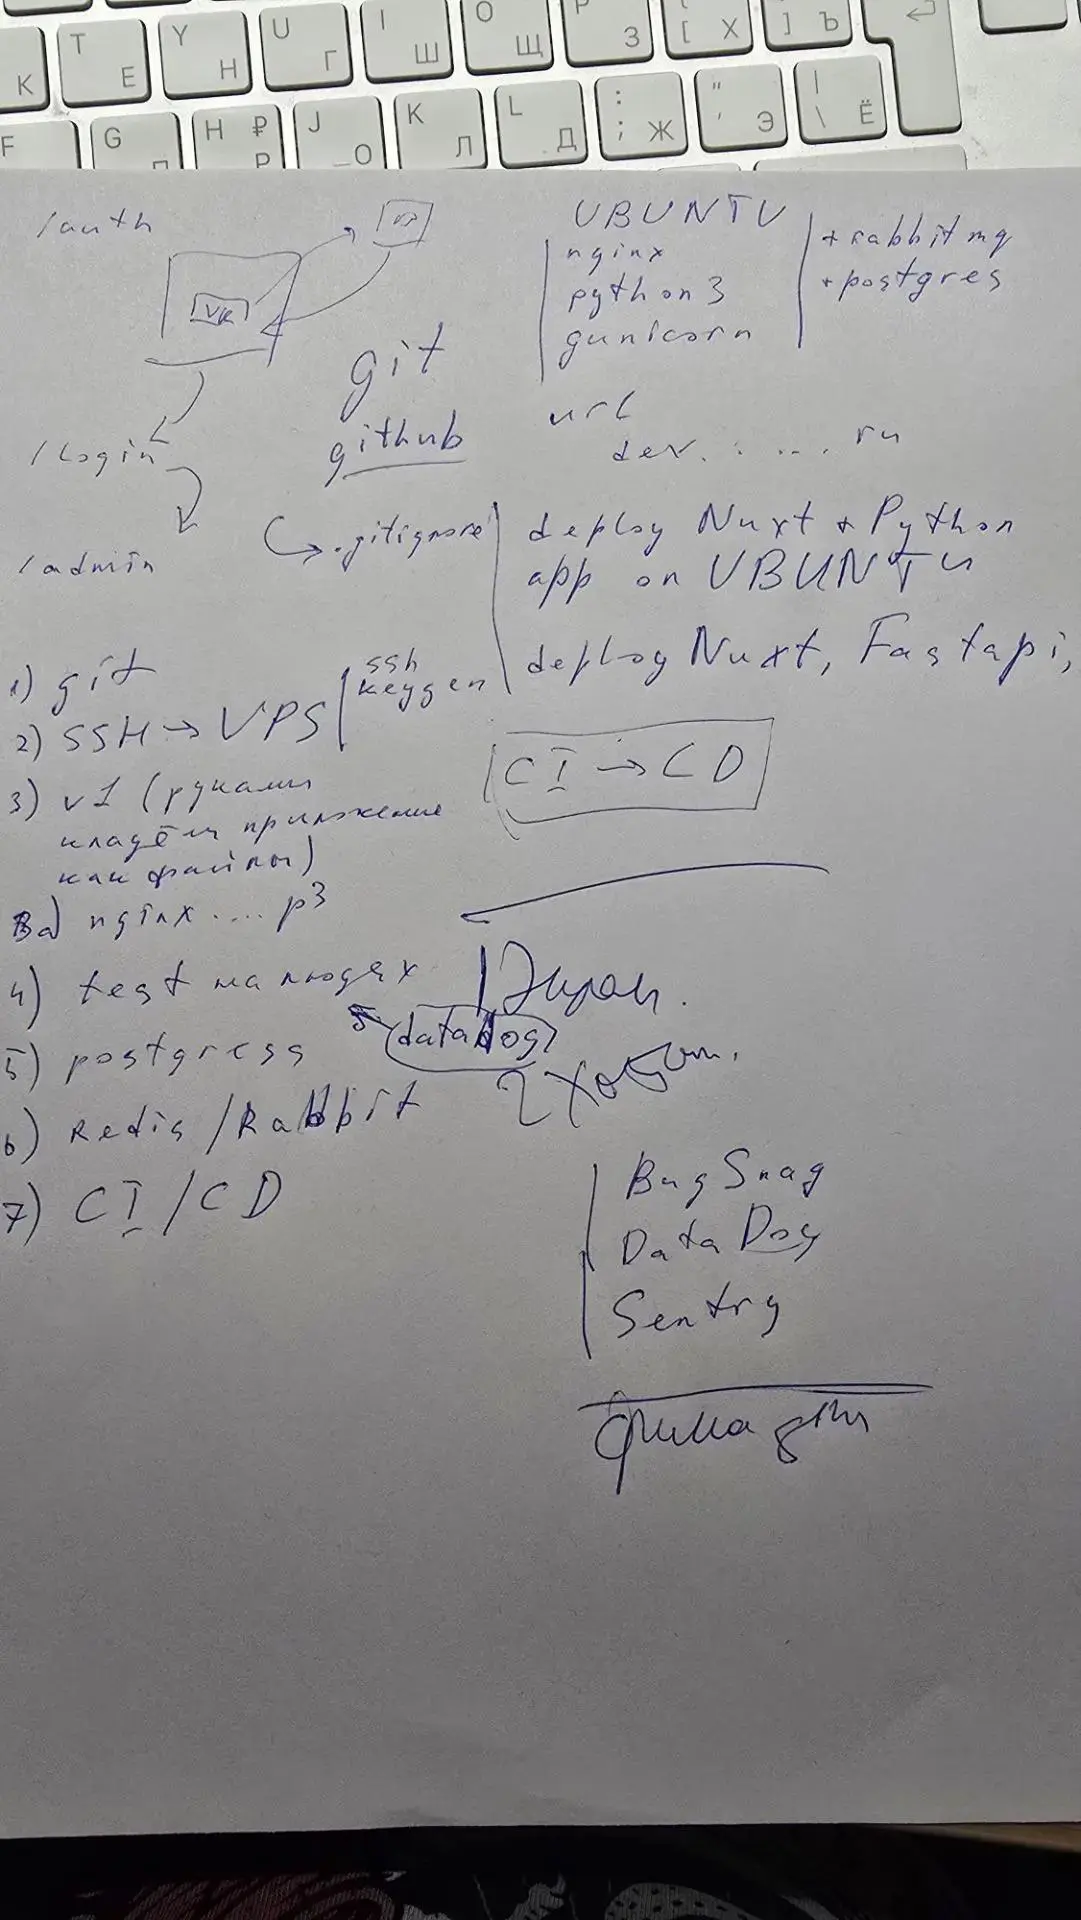 T Е
Y Н
U Г
I Ш
O Щ
P З
[ Х
] Ъ
К
F
G
H ₽ Р
J О
K Л
L Д
: ; Ж
" ' Э
| \ Ё
/auth
VK
UBUNTU
nginx
python3
gunicorn
+ rabbitmq
+ postgres
git
github
.gitignore
url
dev. . . . . . ru
/Login
/admin
deploy Nuxt + Python
app on UBUNTU
deploy Nuxt, Fastapi,
1) git
2) SSH → VPS
ssh
keygen
3) v1 (руками
кладём приложение
как файлы)
3a) nginx .... p3
4) test на людях
5) postgress
6) Redis / Rabbit
7) CI / CD
CI → CD
1 Экран.
datadog
2
BugSnag
DataDog
Sentry